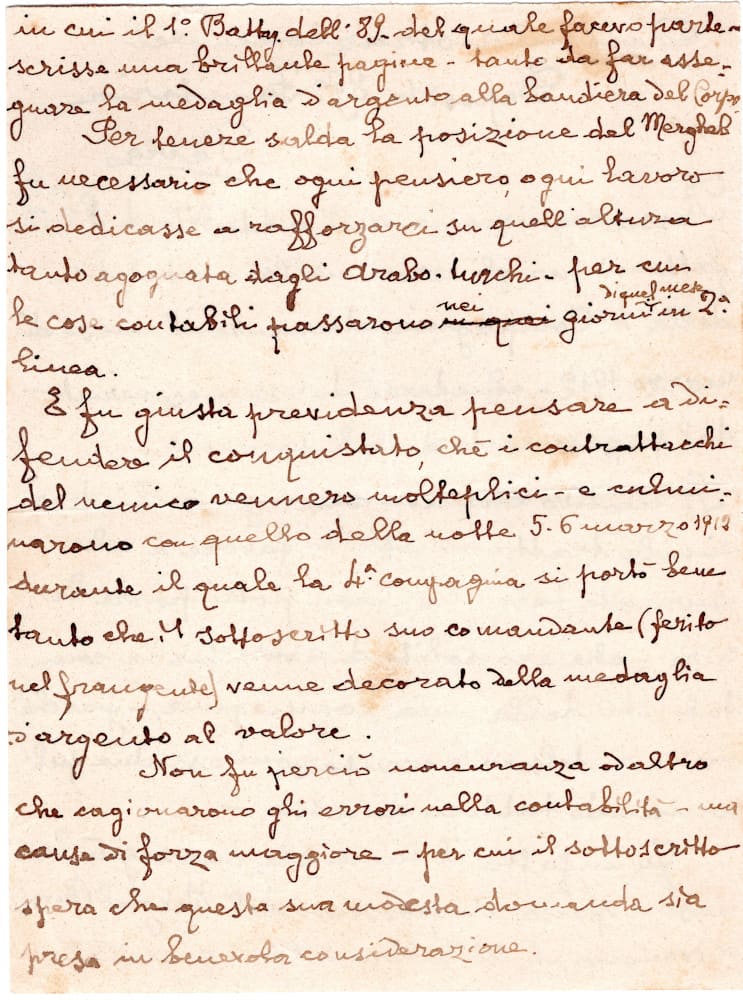 in cui il 1º Battgⁿ dell' 89- del quale facevo parte-
scrisse una brillante pagina - tanto da far asse-
gnare la medaglia d'argento alla bandiera del Corpo.
Per tenere salda la posizione del Merghеb
fu necessario che ogni pensiero, ogni lavoro
si dedicasse a rafforzarci su quell'altura
tanto agognata dagli arabo-turchi- per cui
le cose contabili passarono nei giorni di quel mese in 2ª
linea.
E fu giusta previdenza pensare a di-
fendere il conquistato, chè i contrattacchi
del nemico vennero molteplici - e culmi-
narono con quello della notte 5-6 marzo 1912
durante il quale la 4ª compagnia si portò bene
tanto che il sottoscritto suo comandante (ferito
nel frangente) venne decorato della medaglia
d'argento al valore.
Non fu perciò noncuranza od altro
che cagionarono gli errori nella contabilità - ma
cause di forza maggiore - per cui il sottoscritto
spera che questa sua modesta domanda sia
presa in benevola considerazione.